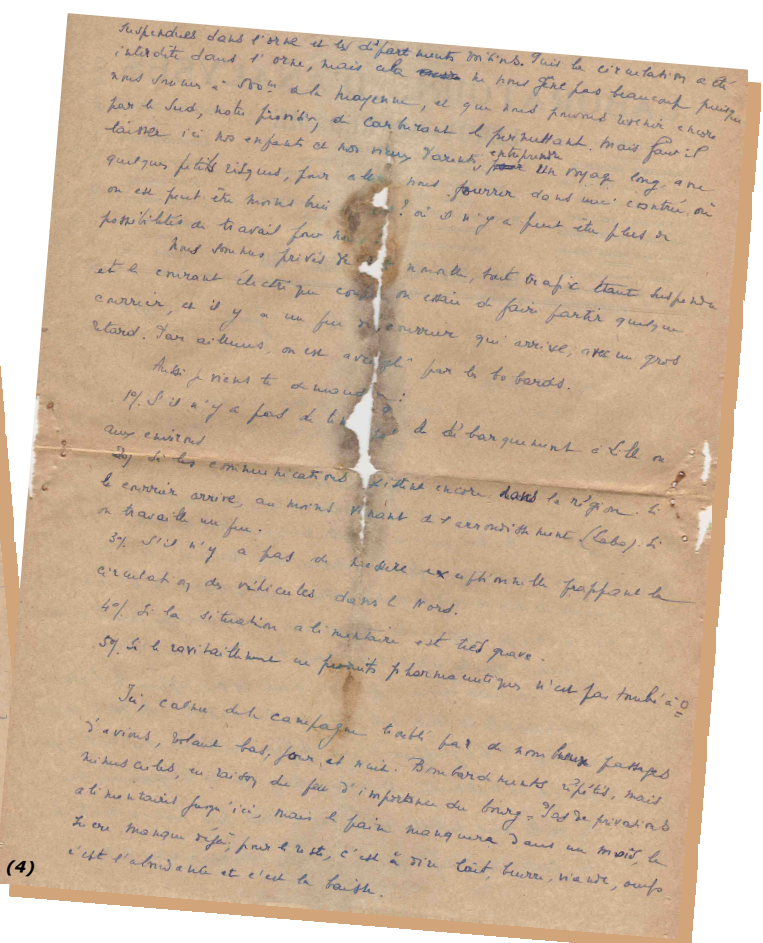 suspendues dans l'orne et les départements voisins. Puis la circulation a été
interdite dans l'orne, mais cela ne nous gêne pas beaucoup puisque
nous sommes à 500m de la Mayenne, et que nous pouvons revenir encore
par le Sud, notre provision de carburant le permettant. Mais faut-il
laisser ici nos enfants et nos vieux Parents, entreprendre un voyage long, avec
quelques petits risques, pour aller nous fourrer dans une contrée, où
on est peut être moins bien ? où il n'y a peut être plus de
possibilités de travail pour
Nous sommes privés de tout trafic étant suspendu
et le courant électrique on essaie de faire partir quelque
courrier, et il y a un peu de courrier qui arrive, avec un gros
retard. Par ailleurs, on est par les bobards.
Aussi je viens te demander :
1°/. S'il n'y a pas de de débarquement à Lille ou
aux environs
2°/ Si les communications existent encore dans la région. Si
le courrier arrive, au moins venant de l'arrondissement (Labo). Si
on travaille un peu.
3°/. S'il n'y a pas de mesure exceptionnelle frappant la
circulation des véhicules dans le Nord.
4°/. Si la situation alimentaire est très grave.
5°/. Si le ravitaillement en produits pharmaceutiques n'est pas tombé à 0
Ici, calme de la campagne troublé par de nombreux passages
d'avions, volant bas, jour et nuit. Bombardements répétés, mais
minuscules, en raison du peu d'importance du bourg. Pas de privations
alimentaires jusqu'ici, mais le pain manquera dans un mois, le
sucre manque déjà, pour le reste, c'est à dire lait, beurre, viande, oeufs
c'est l'abondance et c'est la baisse.
(4)